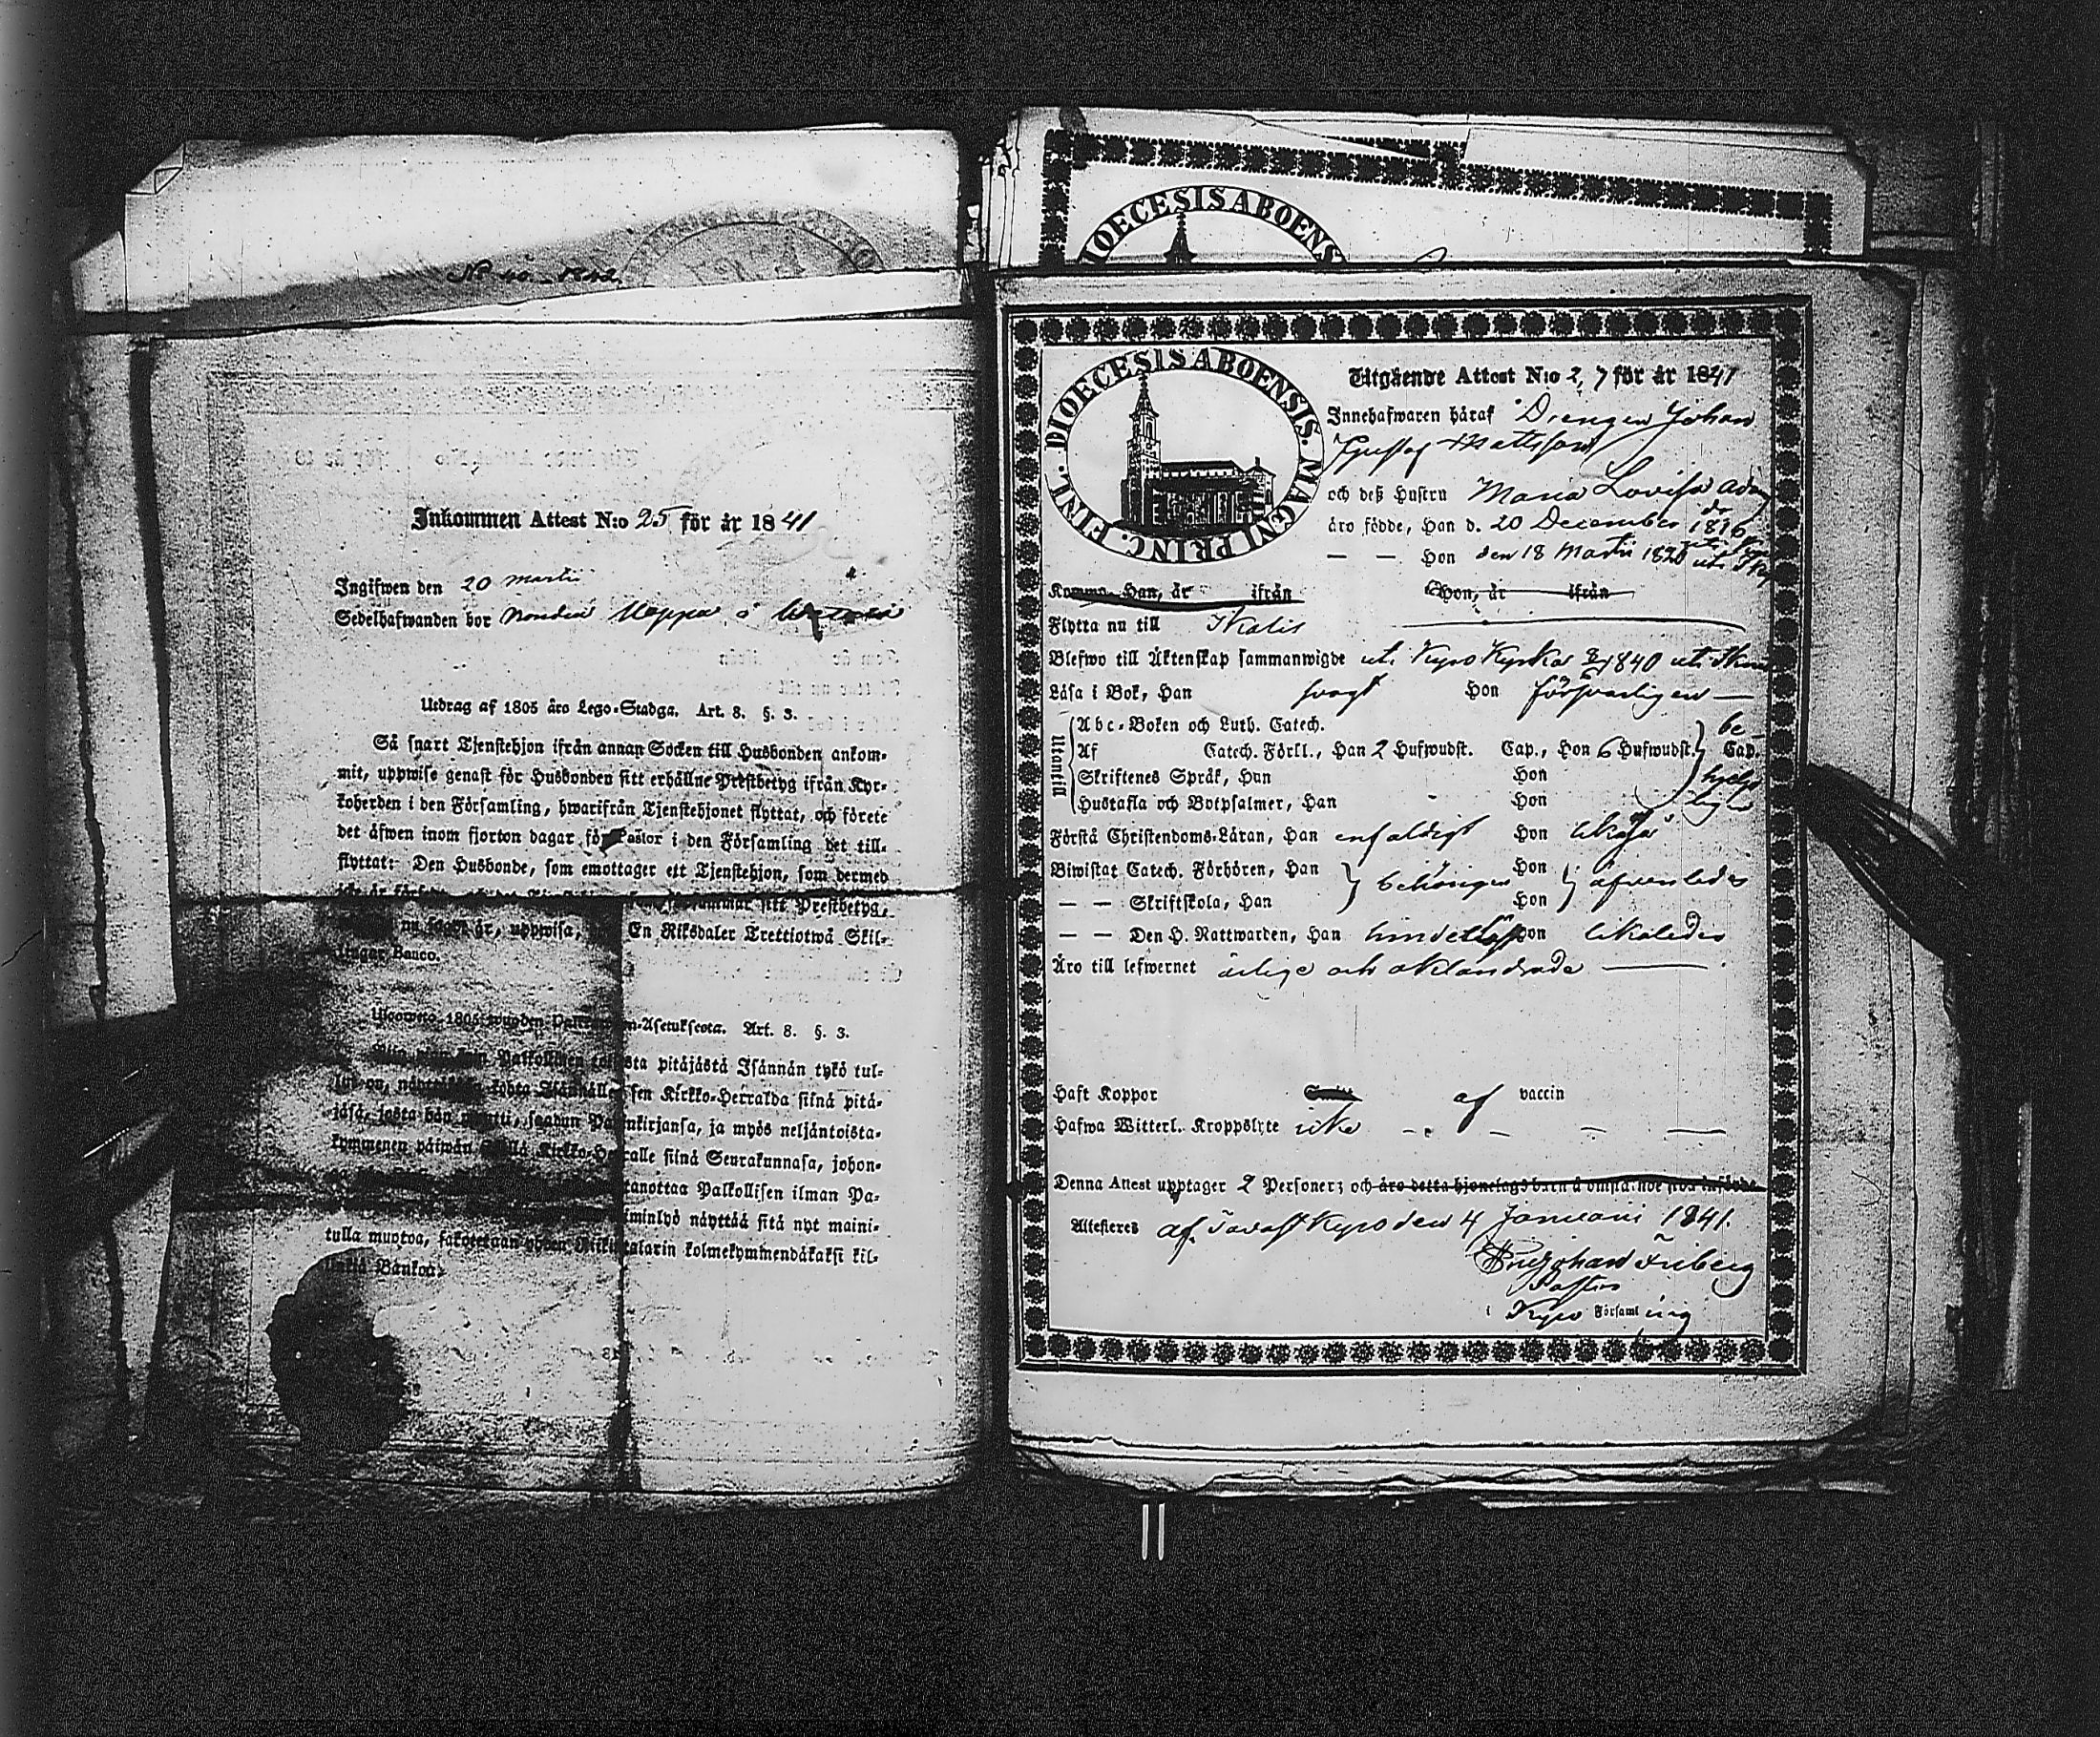 No 40. 1842
Inkommen Attest N:o 25 för år 1841
Ingifwen den 20 martii
Sedelhafwanden bor
Utdrag af 1805 års Lego-Stadga. Art. 8. §. 3.
Så snart Tjenstehjon ifrån annan Socken till Husbonden ankom-
mit, uppwise genast för Husbonden sitt erhållne Prestbetyg ifrån Kyr-
koherden i den Församling, hwarifrån Tjenstehjonet flyttat, och förete
det äfwen inom fjorton dagar för Pastor i den Församling det till-
flyttat: Den Husbonde, som emottager ett Tjenstehjon, som dermed
sitt Prestbetyg,
nu sagdt är, uppwisa, En Riksdaler Trettiotwå Skil-
lingar Banco.
Ulosweto 1805 wuoden Palkollisten-Asetuksesta. Art. 8. §. 3.
Palkollinen toisesta pitäjästä Isännän tykö tul-
lut on, kohta Isännälle sen Kirkko-Herralda siinä pitä-
jäsä, josta hän muutti, saadun Papinkirjansa, ja myös neljäntoista-
kymmenen päiwän sisällä Kirkko-Herralle siinä Seurakunnasa, johon-
wastanottaa Palkollisen ilman Pa-
laiminlyö näyttää sitä nyt maini-
tulla muotoa, sakotetaan yhden Riikintalarin kolmekymmendäkaksi kil-
lingiä Bankoa.
DIOECESIS ABOENS
DIOECESIS ABOENSIS. MAGNI PRINC. FINL.
Utgående Attest N:o 2, 7 för år 1841
Innehafwaren häraf Drengen Johan
Gustaf Mattsson
och deß Hustru Maria Lovisa Adamsdr
äro födde, Han d. 20 December 1816
— — Hon den 18 Martii 1820
Komma, Han, år ifrån Hon, år ifrån
Flytta nu till Ikalis
Blefwo till Äktenskap sammanwigde uti Kyro Kyrka 1840
Läsa i Bok, Han svagt Hon försvarligen —
Utantill
Abc-Boken och Luth. Catech.
Af Catech. Förkl., Han 2 Hufwudst. Cap., Hon 6 Hufwudst. Cap.
Skriftenes Språk, Han Hon
Hustafla och Botpsalmer, Han Hon
be-
hjelp-
ligt
Förstå Christendoms-Läran, Han enfaldigt Hon likaså
Biwistat Catech. Förhören, Han behörigen Hon äfvenledes
— — Skriftskola, Han Hon
— — Den H. Nattwarden, Han hinderlöst Hon likaledes
Äro till lefwernet ärlige och oklandrade —
Haft Koppor Smitt af vaccin
Hafwa Witterl. Kroppslyte icke — — — —
Denna Attest upptager 2 Personer; och äro detta hjonelags barn å omstående sida införde.
Attesteres af Tavastkyro den 4 Januarii 1841.
Friberg
Pastor
i Kyro Församling